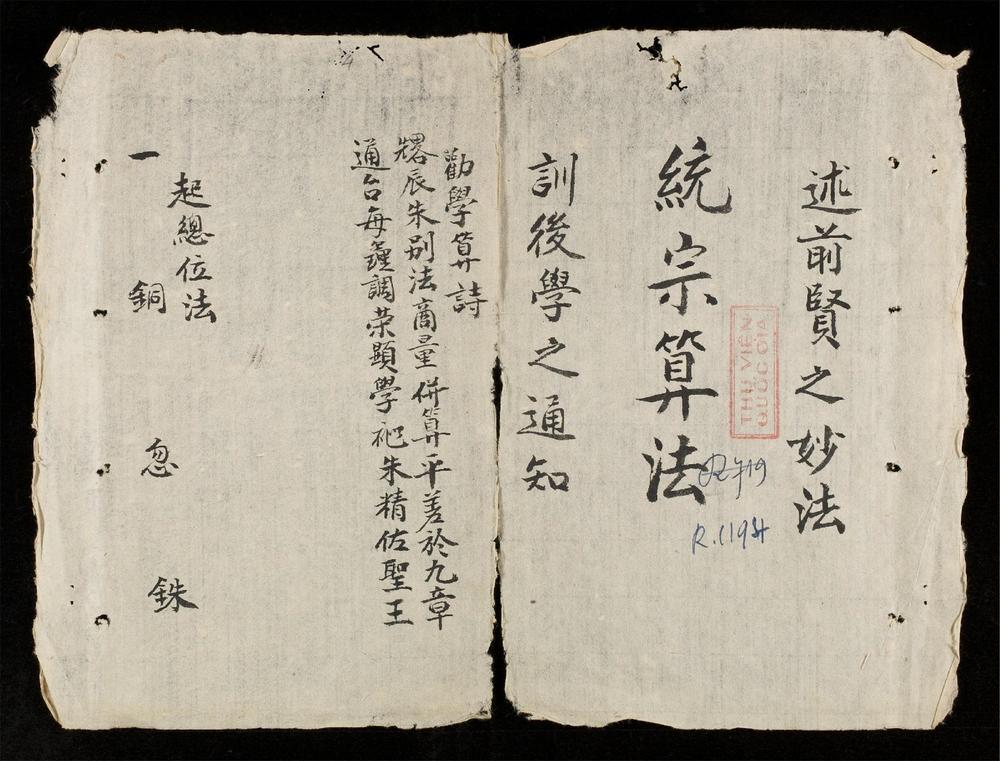 述前賢之妙法
統宗算法
訓後學之通知
THƯ VIỆN
QUỐC GIA
R.1194
勸學算詩
辰朱別法商量併算平差於九章
通台每鍾調荣顯學祂朱精佐聖王
起總位法
一 銅 忽 銖